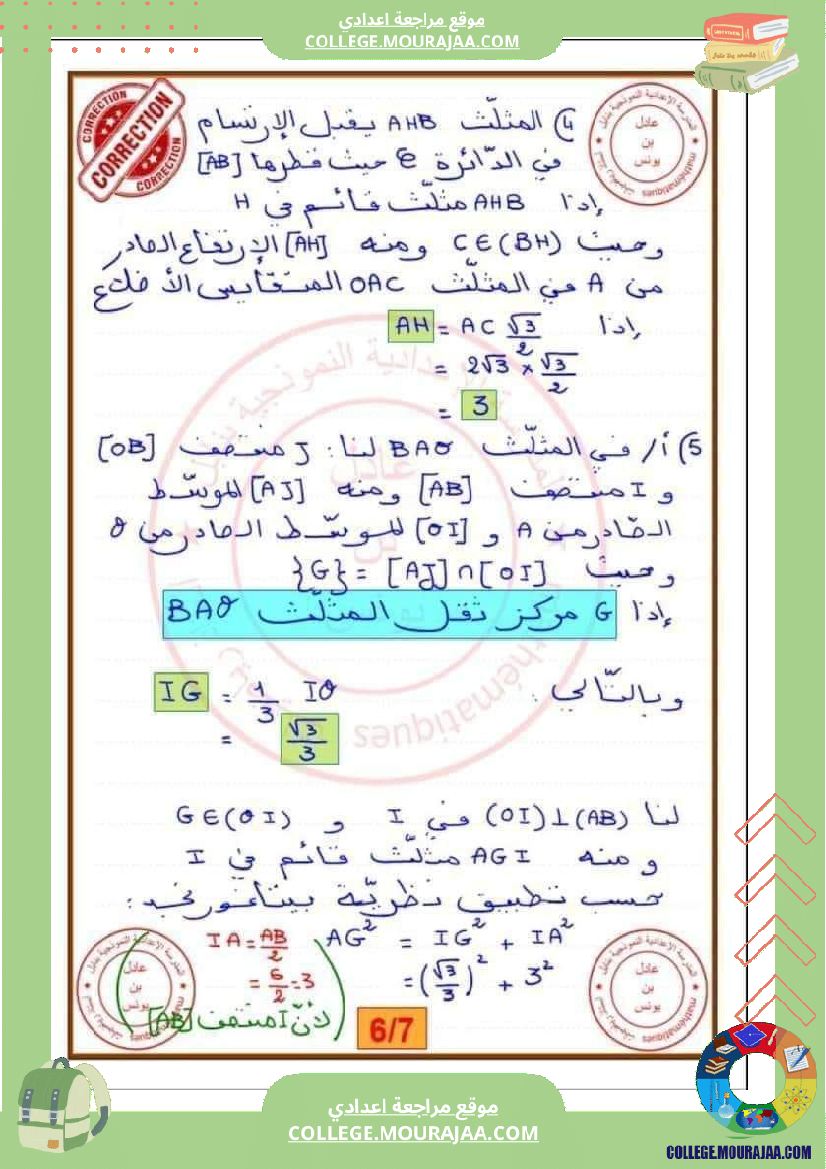 موقع مراجعة اعدادي
COLLEGE.MOURAJAA.COM
CORRECTION
CORRECTION
CORRECTION
عادل
بن
يونس
4) المثلّث AHB يقبل الإرتسام
في الدّائرة C حيث قطرها [AB]
إذا AHB مثلّث قائم في H
وحيث C∈(BH) ومنه [AH] الإرتفاع الصادر
من A في المثلّث OAC المتقايس الأضلاع
إذا AH = AC √3/2
= 2√3 × √3/2
= 3
5) أ/ في المثلّث BAO لنا: J منتصف [OB]
و I منتصف [AB] ومنه [AJ] الموسّط
الصّادر من A و [OI] الموسّط الصادر من O
وحيث [AJ]∩[OI] = {G}
إذا G مركز ثقل المثلّث BAO
وبالتّالي: IG = 1/3 IO
= √3/3
لنا (OI)⊥(AB) في I و G∈(OI)
ومنه AGI مثلّث قائم في I
حسب تطبيق نظريّة بيتاغور نجد:
AG² = IG² + IA²
= (√3/3)² + 3²
(IA = AB/2
= 6/2 = 3
لأنّ I منتصف [AB])
عادل
بن
يونس
عادل
بن
يونس
6/7
موقع مراجعة اعدادي
COLLEGE.MOURAJAA.COM
COLLEGE.MOURAJAA.COM